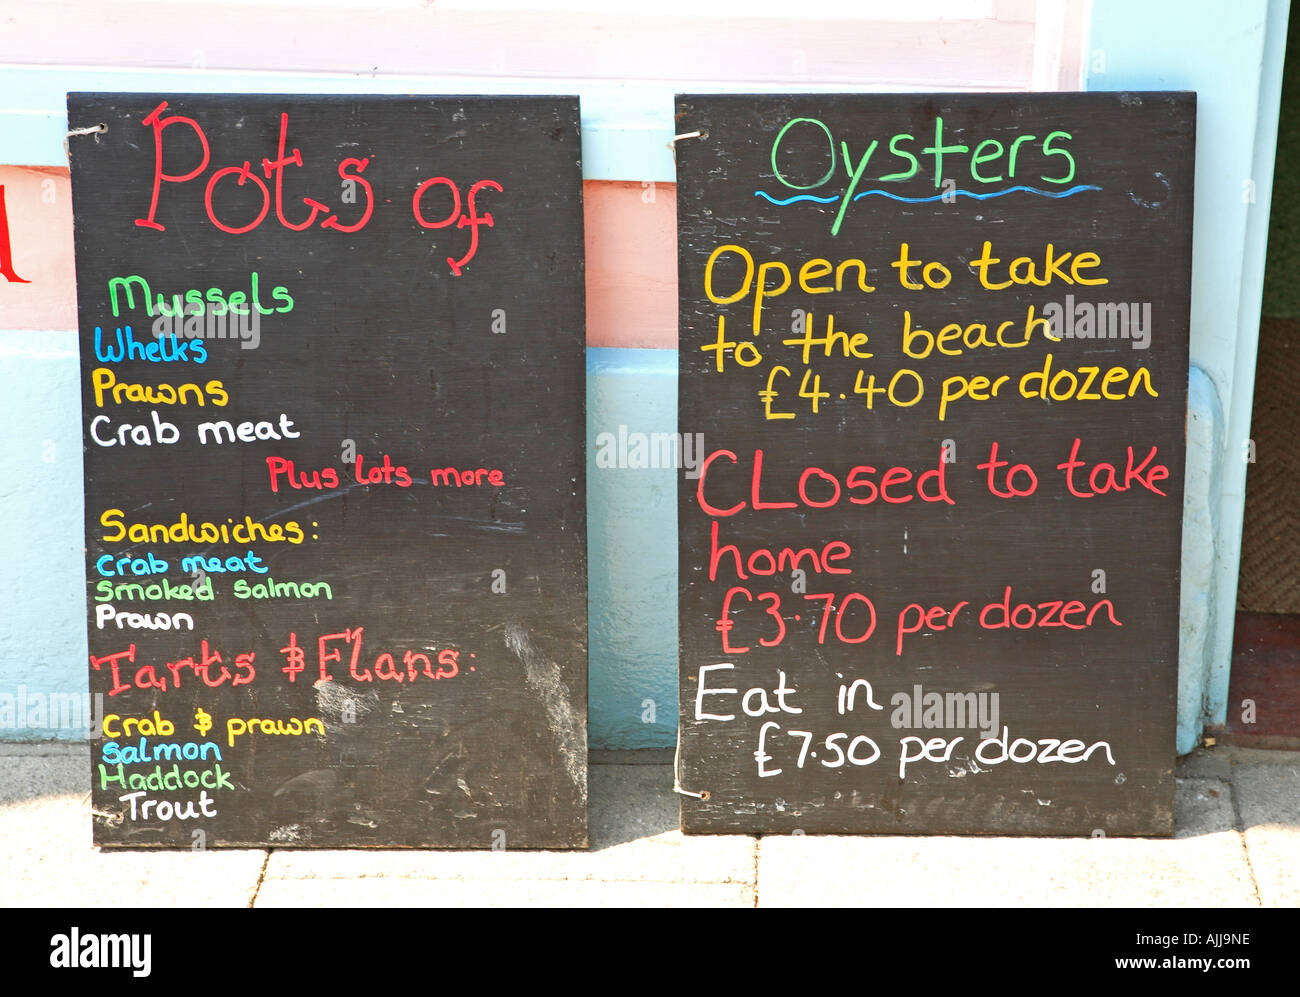 Pots of
Mussels
Whelks
Prawns
Crab meat
Plus lots more
Sandwiches:
Crab meat
Smoked Salmon
Prawn
Tarts & Flans:
Crab & prawn
Salmon
Haddock
Trout
Oysters
Open to take
to the beach
£4.40 per dozen
CLosed to take
home
£3.70 per dozen
Eat in
£7.50 per dozen
alamy
Image ID: AJJ9NE
www.alamy.com